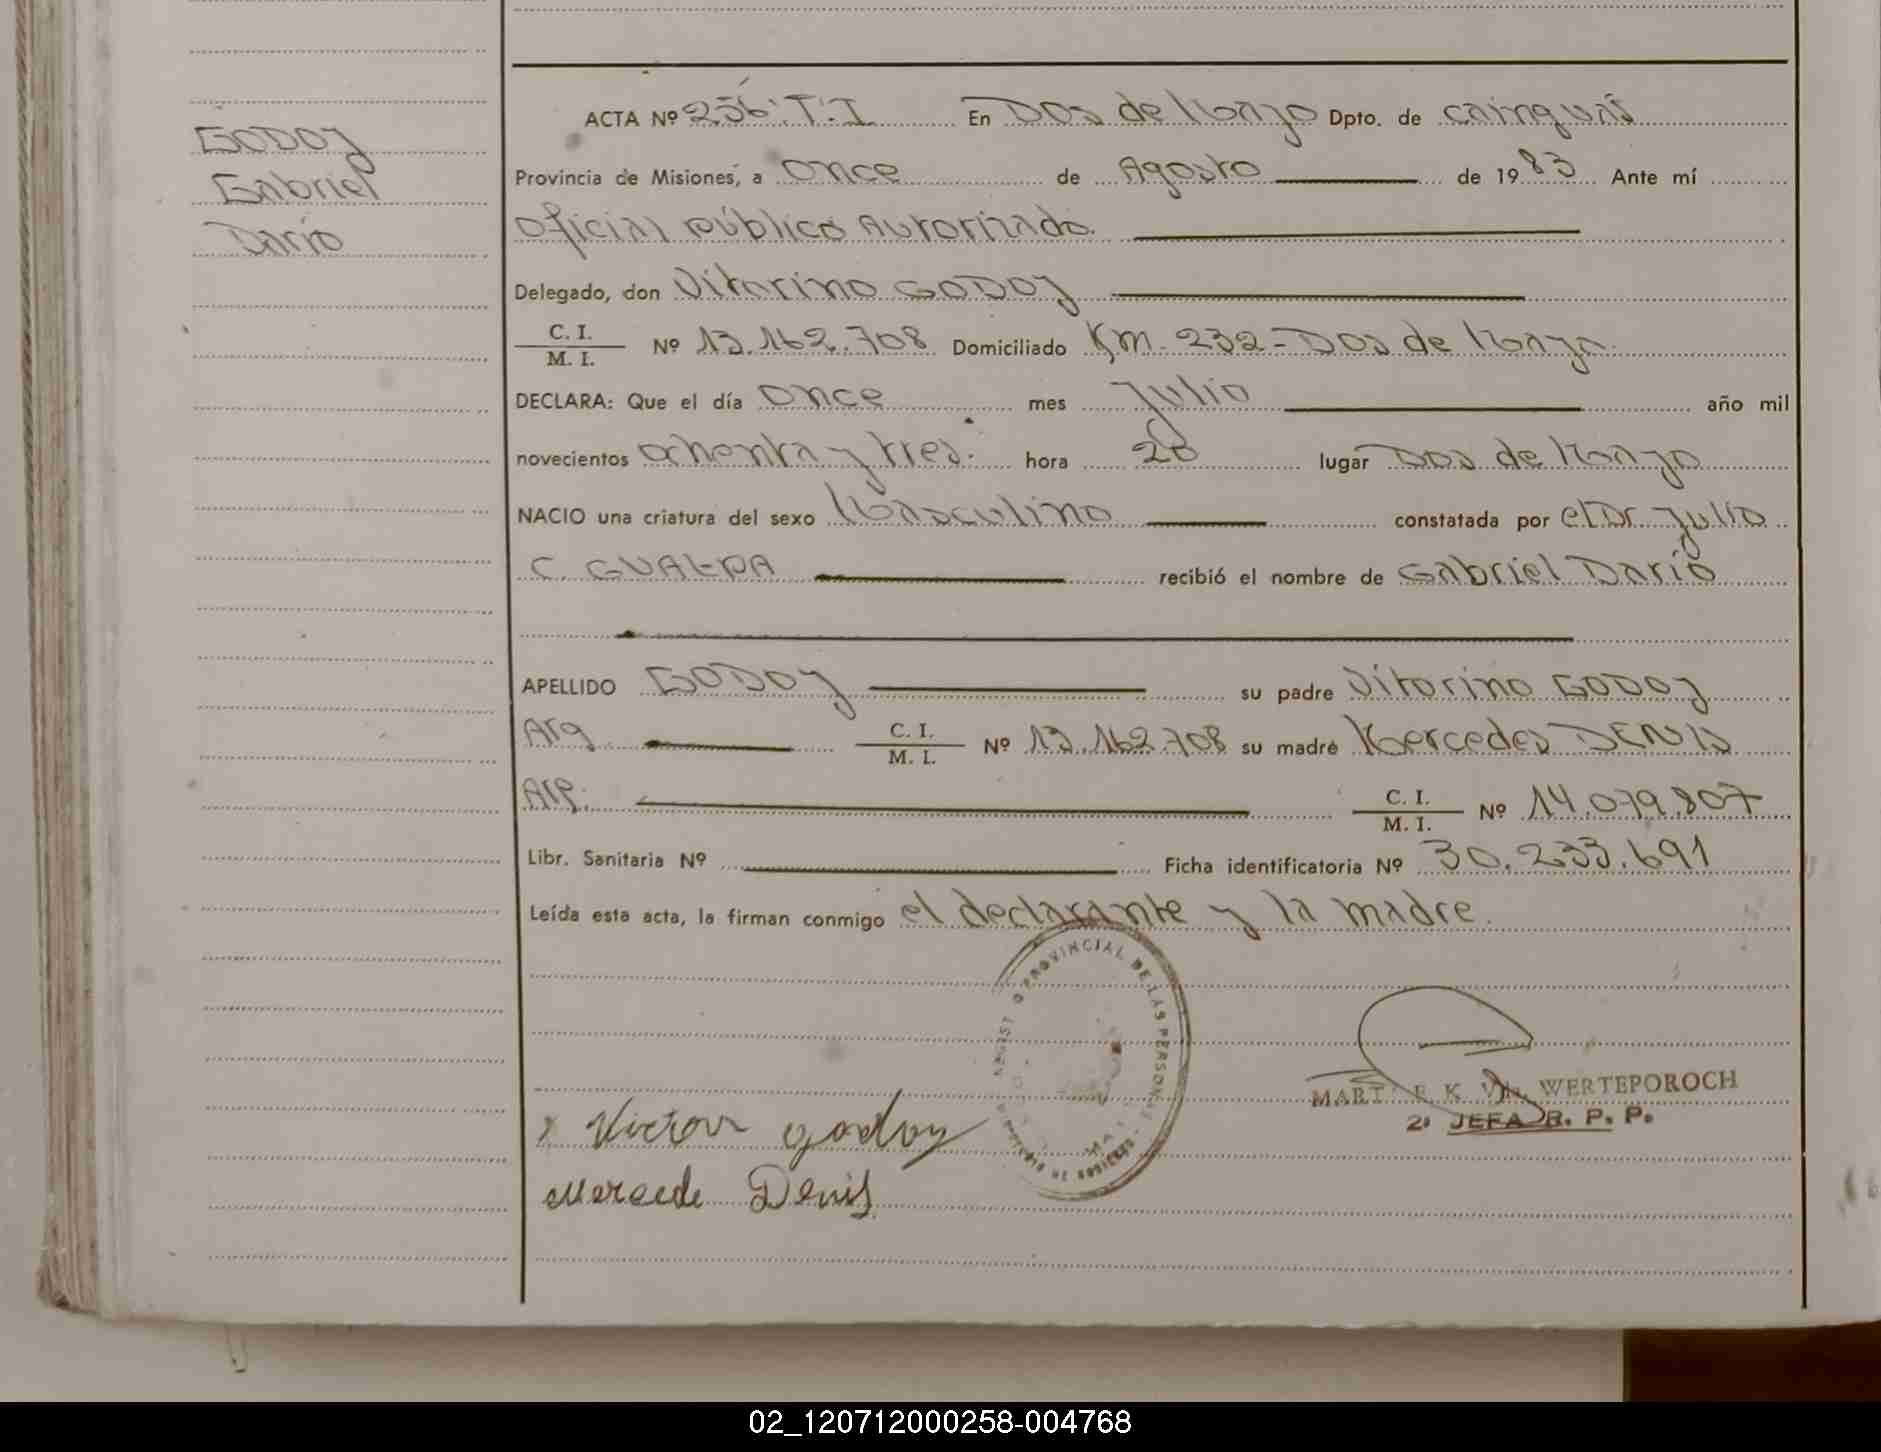 GODOY
Gabriel
Darío
ACTA Nº 256. T. I En Dos de Mayo Dpto. de Cainguás
Provincia de Misiones, a once de Agosto de 1983 Ante mí
Oficial público Autorizado.
Delegado, don Vitorino GODOY
C. I.
M. I. Nº 13.162.708 Domiciliado Km. 232 - Dos de Mayo.
DECLARA: Que el día once mes Julio año mil
novecientos ochenta y tres. hora 20 lugar Dos de Mayo
NACIO una criatura del sexo Masculino constatada por el Dr. Julio
C. GUALPA recibió el nombre de Gabriel Darío
APELLIDO GODOY su padre Vitorino GODOY
Arg C. I.
M. I. Nº 13.162.708 su madre Mercedes DENIS
Arg. C. I.
M. I. Nº 14.079.807
Libr. Sanitaria Nº Ficha identificatoria Nº 30.233.691
Leída esta acta, la firman conmigo el declarante y la madre.
PROVINCIAL DE LAS PERSONAS
MART E. K. WERTEPOROCH
2ª JEFA R. P. P.
x Victor godoy
Mercede Denis
02_120712000258-004768